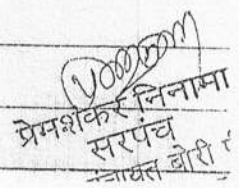 प्रेमशंकर निनामा
सरपंच
पंचायत बोरी